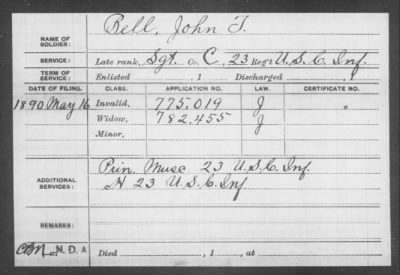 NAME OF SOLDIER: Bell, John F.
SERVICE: Late rank, Sgt. Co. C, 23 Reg't U.S.C. Inf.
TERM OF SERVICE: Enlisted , 1 Discharged , 1
DATE OF FILING. CLASS. APPLICATION NO. LAW. CERTIFICATE NO.
1890 May 16 Invalid, 775.019 J
Widow, 782.455 J
Minor,
ADDITIONAL SERVICES: Prin. Musc 23 U.S.C. Inf.
H 23 U.S.C. Inf
REMARKS:
N.D.A Died , 1 , at